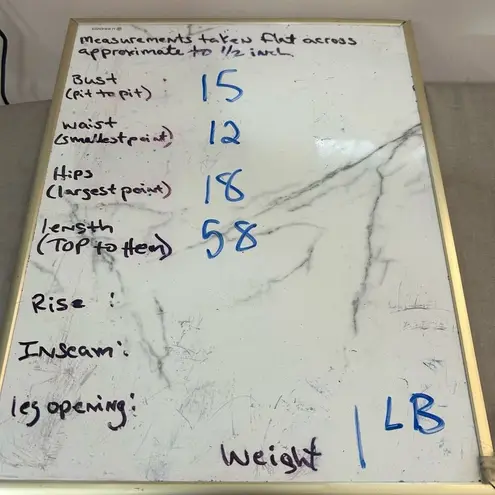 measurements taken flat across
approximate to 1/2 inch.
Bust 15
(pit to pit)
waist 12
(smallest point)
Hips 18
(largest point)
length 58
(TOP to Hem)
Rise :
Inseam:
leg opening:
Weight 1 LB